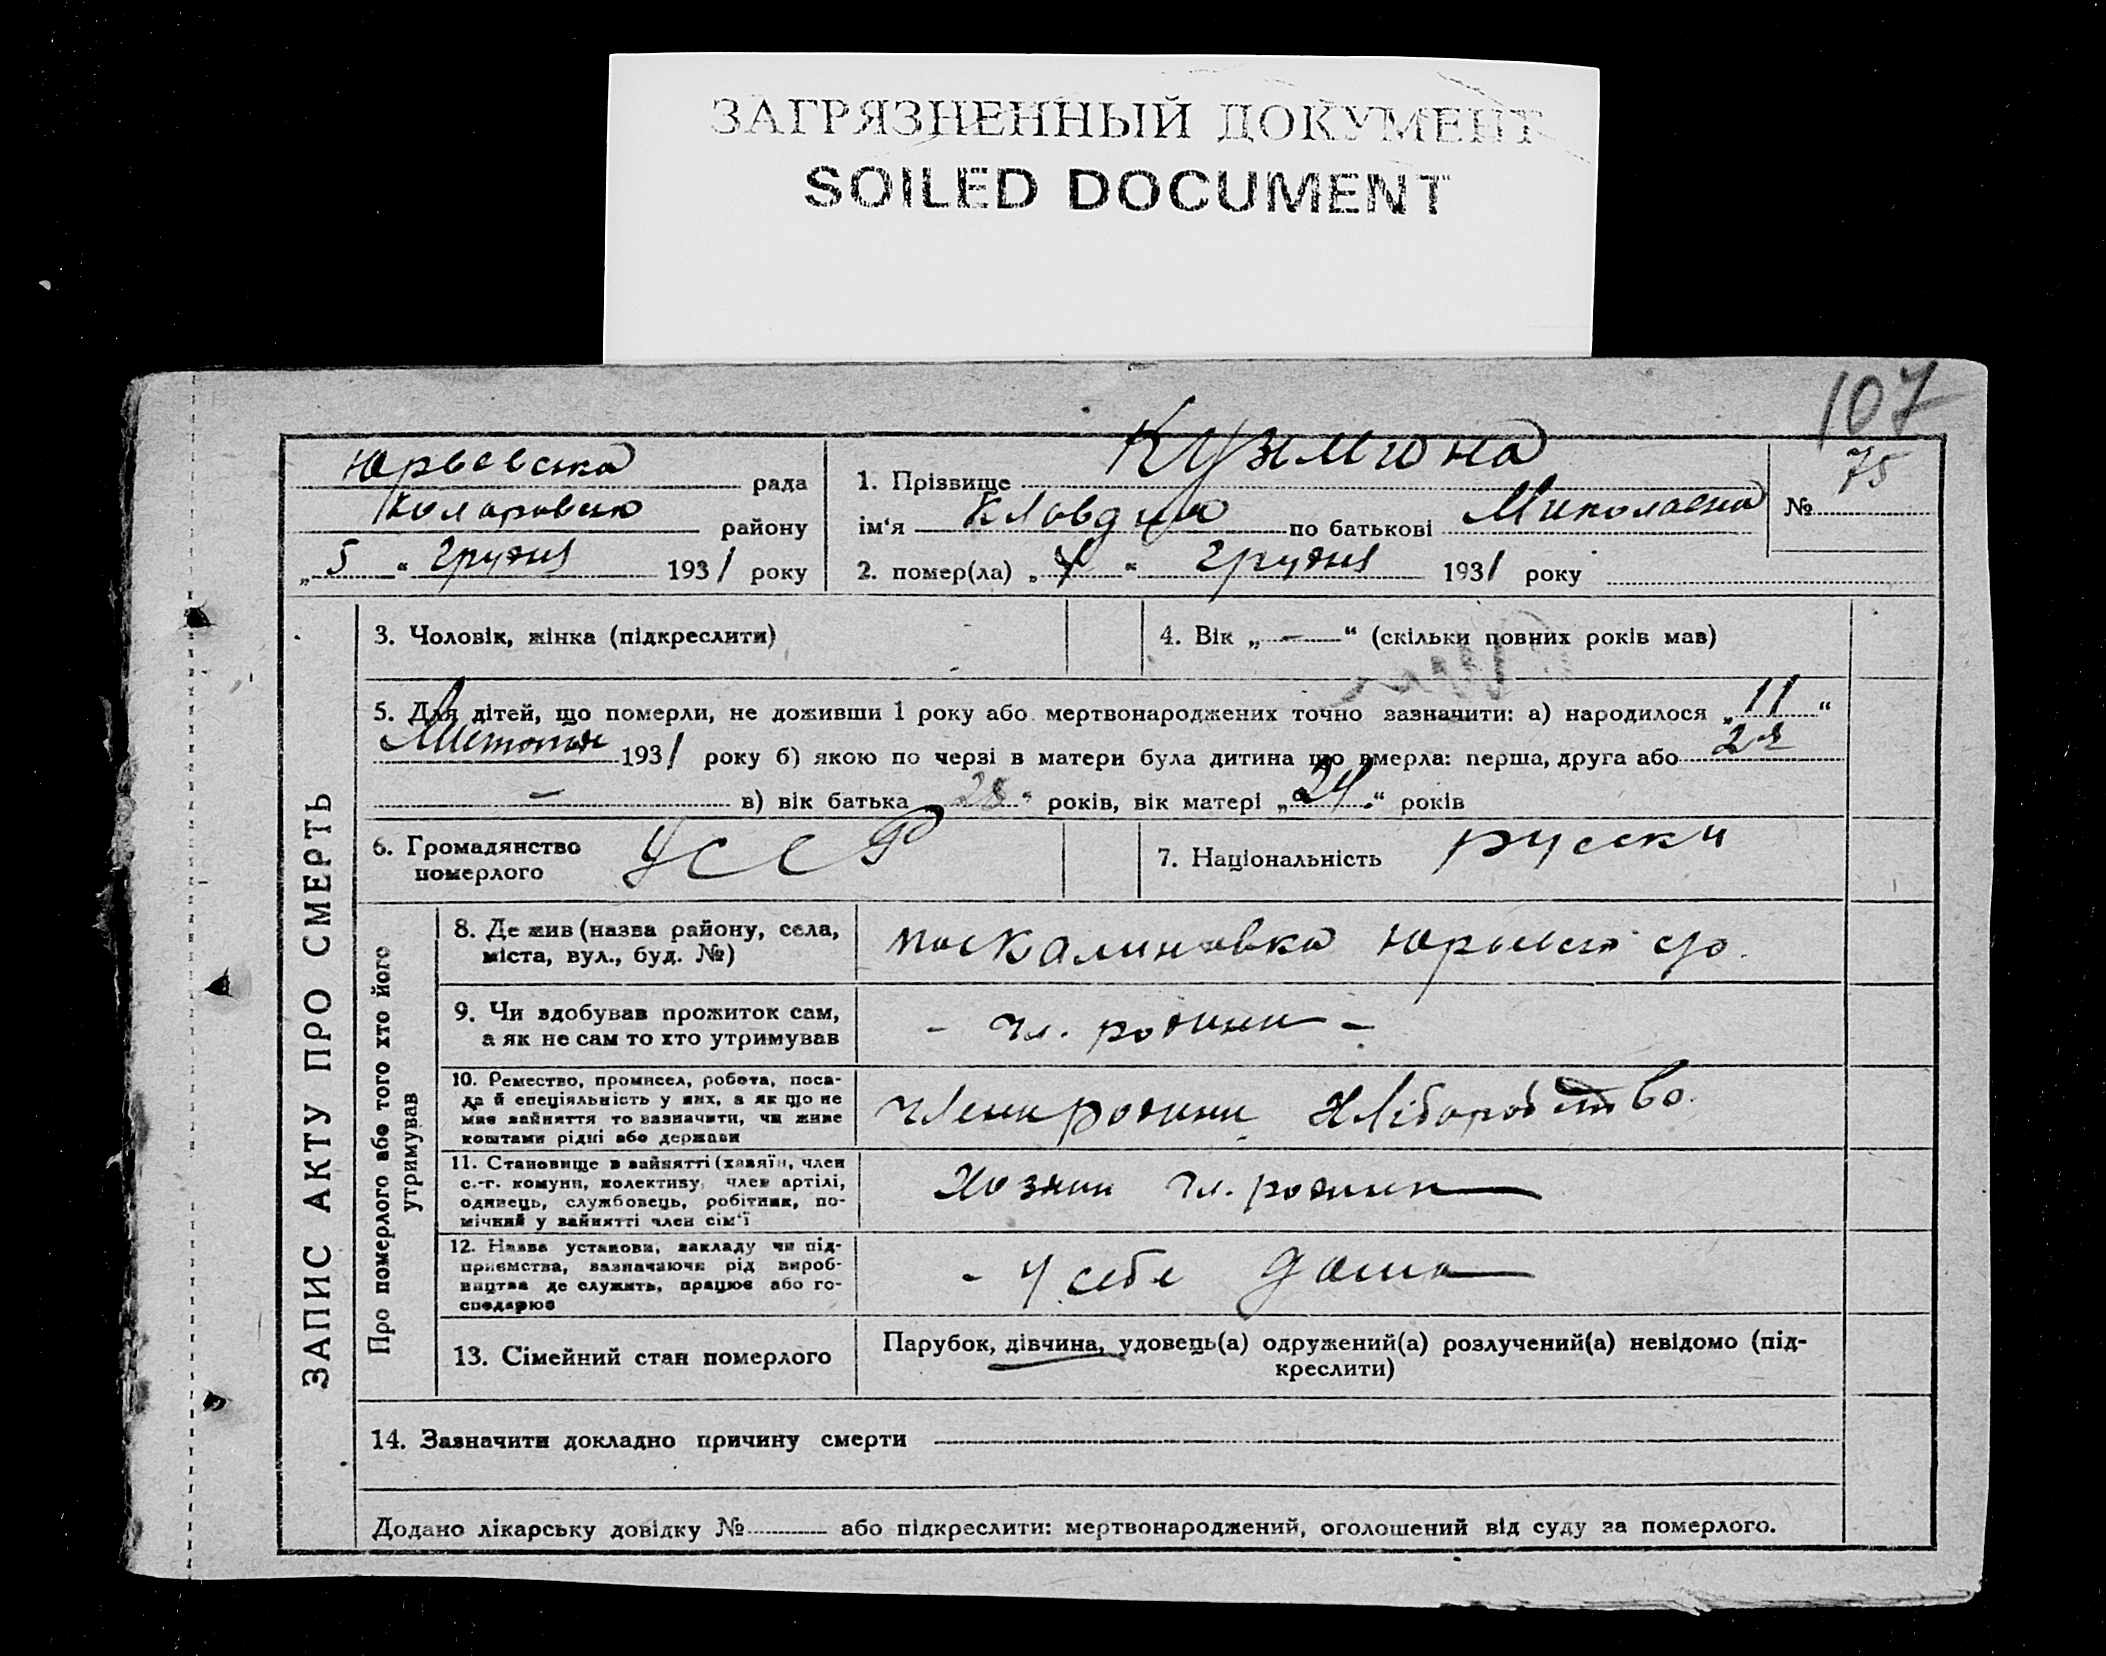 ЗАГРЯЗНЕННЫЙ ДОКУМЕНТ
SOILED DOCUMENT
107
Юрьевська рада
району
„5“ Грудня 1931 року
1. Прізвище Кузьмина
ім‘я Клавдия по батькові Миколаевна
2. помер(ла) „4“ Грудня 1931 року
№ 75
ЗАПИС АКТУ ПРО СМЕРТЬ
3. Чоловік, жінка (підкреслити)
4. Вік „—“ (скільки повних років мав)
5. Для дітей, що померли, не доживши 1 року або мертвонароджених точно зазначити: а) народилося „11“
Листопада 1931 року б) якою по черзі в матери була дитина що вмерла: перша, друга або 2я
— в) вік батька „28“ років, вік матері „24“ років
6. Громадянство
померлого УССР
7. Національність русски
Про померлого або того хто його
утримував
8. Де жив (назва району, села,
міста, вул., буд. №)
пос Калиновка
9. Чи здобував прожиток сам,
а як не сам то хто утримував
- чл. родини -
10. Ремество, промисел, робота, поса-
да й спеціяльність у них, а як що не
мав зайняття то зазначити, чи живе
коштами рідні або держави
член родини Хліборобство
11. Становище в зайнятті (хазяїн, член
с.-г. комуни, колективу, член артілі,
одинець, службовець, робітник, по-
мічний у зайнятті член сім‘ї
Хозяин чл. родини
12. Назва установи, закладу чи під-
приємства, зазначаючи рід вироб-
ництва де служить, працює або го-
сподарює
- у себе дома
13. Сімейний стан померлого
Парубок, дівчина, удовець(а) одружений(а) розлучений(а) невідомо (під-
креслити)
14. Зазначити докладно причину смерти
Додано лікарську довідку № або підкреслити: мертвонароджений, оголошений від суду за померлого.